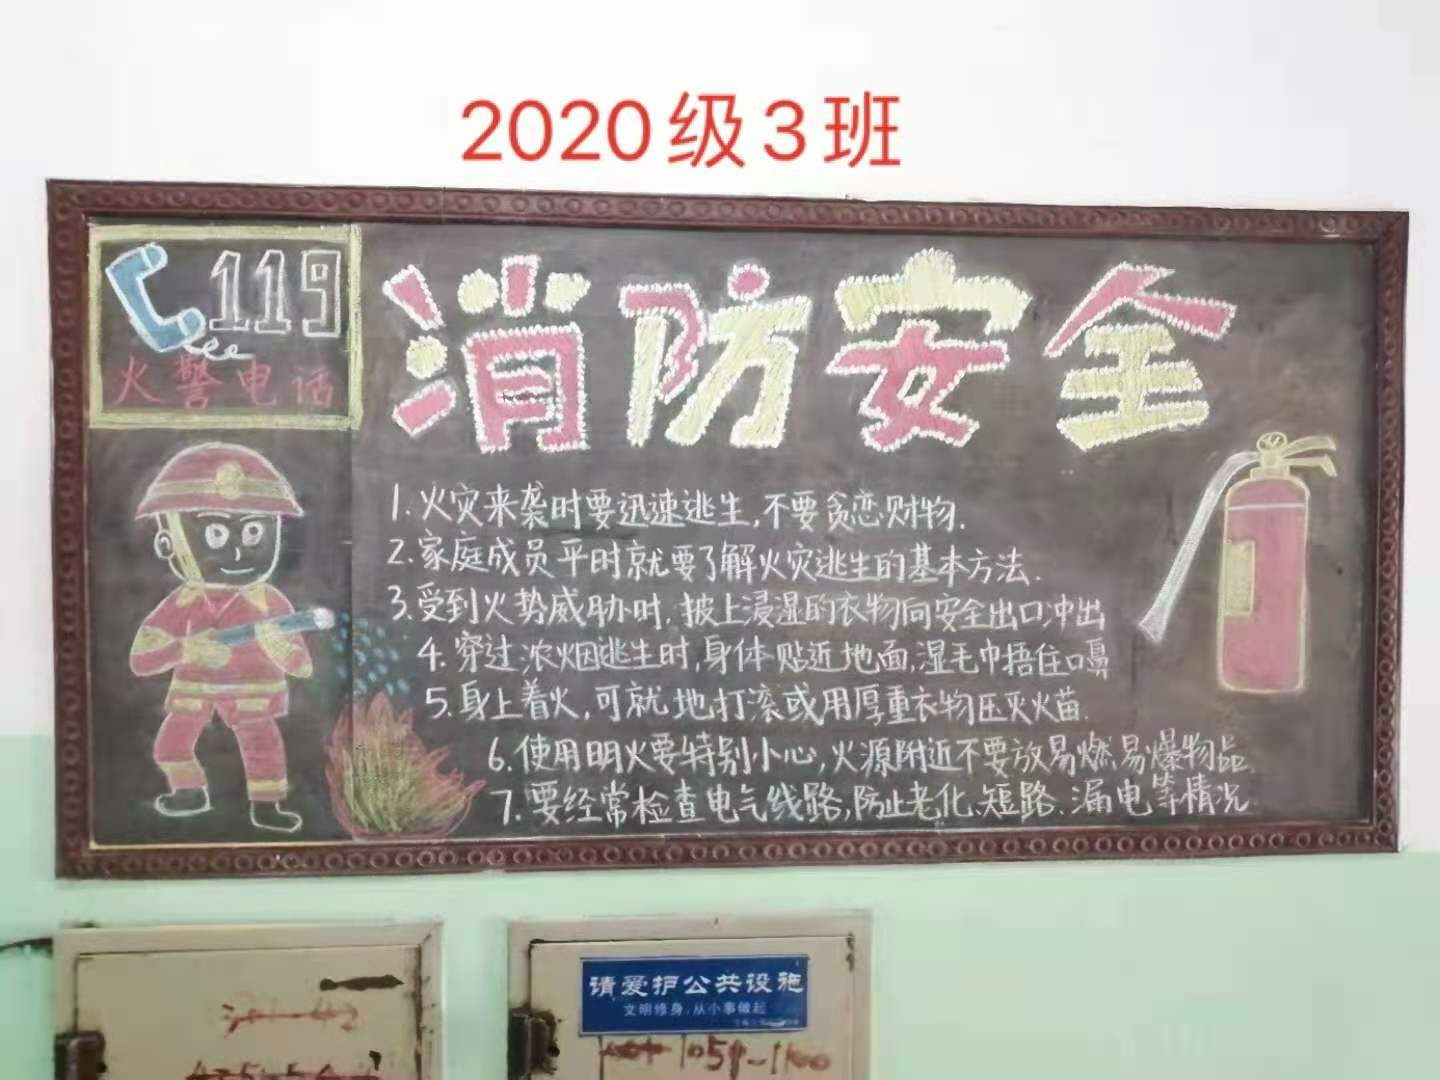 2020级3班
119
火警电话
消防安全
1.火灾来袭时要迅速逃生,不要贪恋财物.
2.家庭成员平时就要了解火灾逃生的基本方法.
3.受到火势威胁时,披上浸湿的衣物向安全出口冲出
4.穿过浓烟逃生时,身体贴近地面,湿毛巾捂住口鼻
5.身上着火,可就地打滚或用厚重衣物压灭火苗.
6.使用明火要特别小心,火源附近不要放易燃、易爆物品.
7.要经常检查电气线路,防止老化、短路、漏电等情况.
请爱护公共设施
文明修身,从小事做起
1051-1100